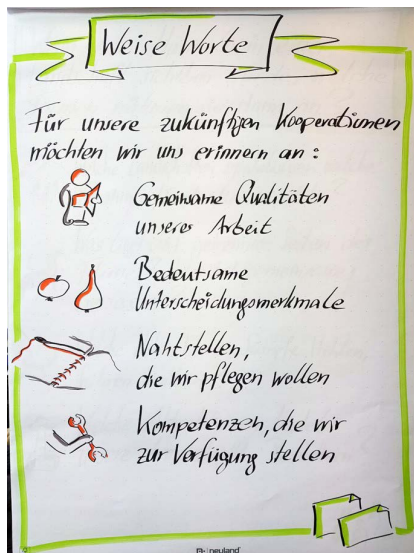 Weise Worte
Für unsere zukünftigen Kooperationen
möchten wir uns erinnern an:
Gemeinsame Qualitäten
unserer Arbeit
Bedeutsame
Unterscheidungsmerkmale
Nahtstellen,
die wir pflegen wollen
Kompetenzen, die wir
zur Verfügung stellen
neuland